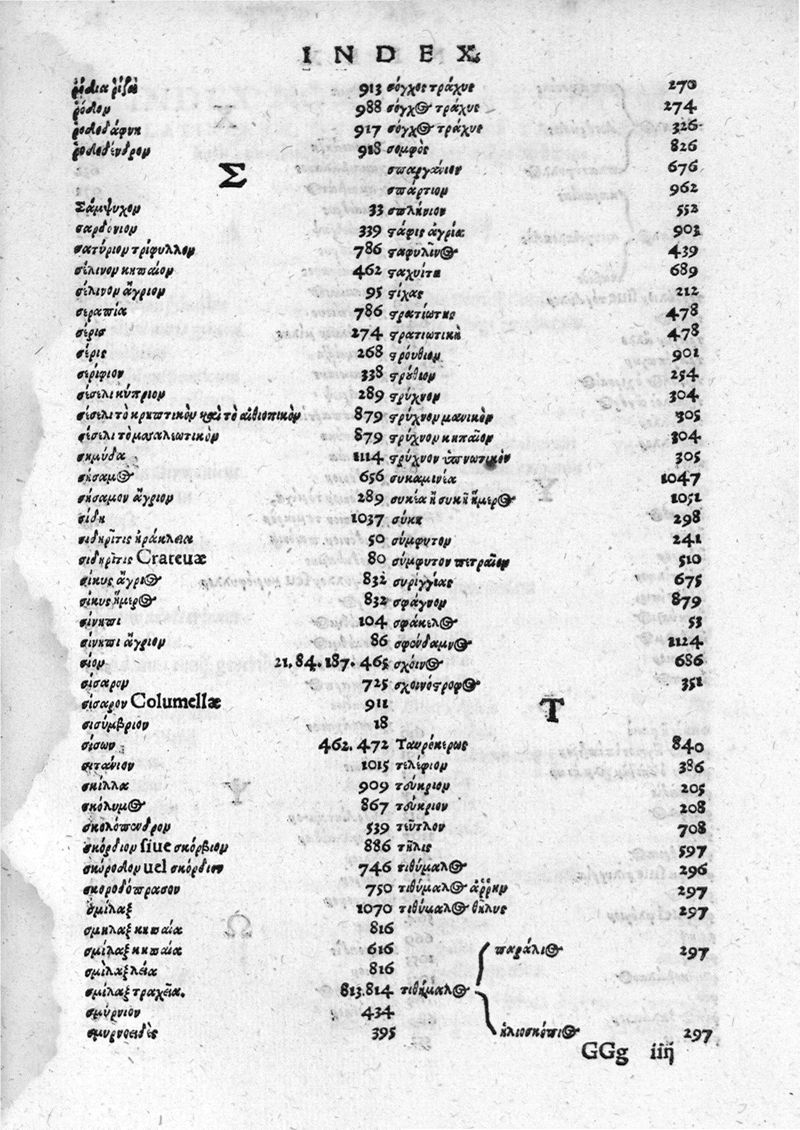 INDEX
ῥόδια ῥίζα 913
ῥόδιον 988
ῥοδοδάφνη 917
ῥοδόδενδρον 918
Σ
Σάμψυχον 33
σαρδόνιον 339
σατύριον τρίφυλλον 786
σέλινον κηπαῖον 462
σέλινον ἄγριον 95
σεραπία 786
σέρις 274
σέρις 268
σερίφιον 338
σέσελι κύπριον 289
σέσελι τὸ κρητικὸν καὶ τὸ αἰθιοπικὸν 879
σέσελι τὸ μασαλεωτικὸν 879
σημύδα 1114
σήσαμος 656
σήσαμον ἄγριον 289
σίδη 1037
σιδηρῖτις ἡράκλεια 50
σιδηρῖτις Crateuæ 80
σίκυς ἄγριος 832
σίκυς ἥμερος 832
σίνηπι 104
σίνηπι ἄγριον 86
σίον 21. 84. 187. 465
σίσαρον 725
σίσαρον Columellæ 911
σισύμβριον 18
σίσων 462. 472
σιτάνιον 1015
σκίλλα 909
σκόλυμος 867
σκολόπενδρον 539
σκόρδιον siue σκόρβιον 886
σκόροδον uel σκόρδιον 746
σκοροδόπρασον 750
σμίλαξ 1070
σμηλαξ κηπαία 816
σμίλαξ κηπαία 616
σμῖλαξ λεία 816
σμίλαξ τραχεῖα. 813.814
σμύρνιον 434
σμυρνοειδὲς 395
σόγχος τράχυς 270
σόγχος τράχυς 274
σόγχος τράχυς 326
σομφὸς 826
σπαργάνιον 676
σπάρτιον 962
σπλήνιον 552
σταφις ἀγρία 903
σταφυλῖνος 439
σταχυίτη 689
στίχας 212
στρατιώτης 478
στρατιωτικὴ 478
στρούθιον 901
στρύθιον 254
στρύχνον 304
στρύχνον μανικὸν 305
στρύχνον κηπαῖον 304
στρύχνον ὑπνωτικὸν 305
συκαμινέα 1047
συκέα ἢ συκῆ ἥμερος 1051
σύκη 298
σύμφυτον 241
σύμφυτον πετραῖον 510
συριγγίας 675
σφάγνον 879
σφάκελος 53
σφένδαμνος 1124
σχοῖνος 686
σχοινόστροφος 351
Τ
Ταυρόκερως 840
τελέφιον 386
τεύκριον 205
τεύκριον 208
τεῦτλον 708
τῆλις 597
τιθύμαλος 296
τιθύμαλος ἄῤῥην 297
τιθύμαλος θῆλυς 297
τιθύμαλος
παράλιος 297
ἡλιοσκόπιος 297
GGg iiij